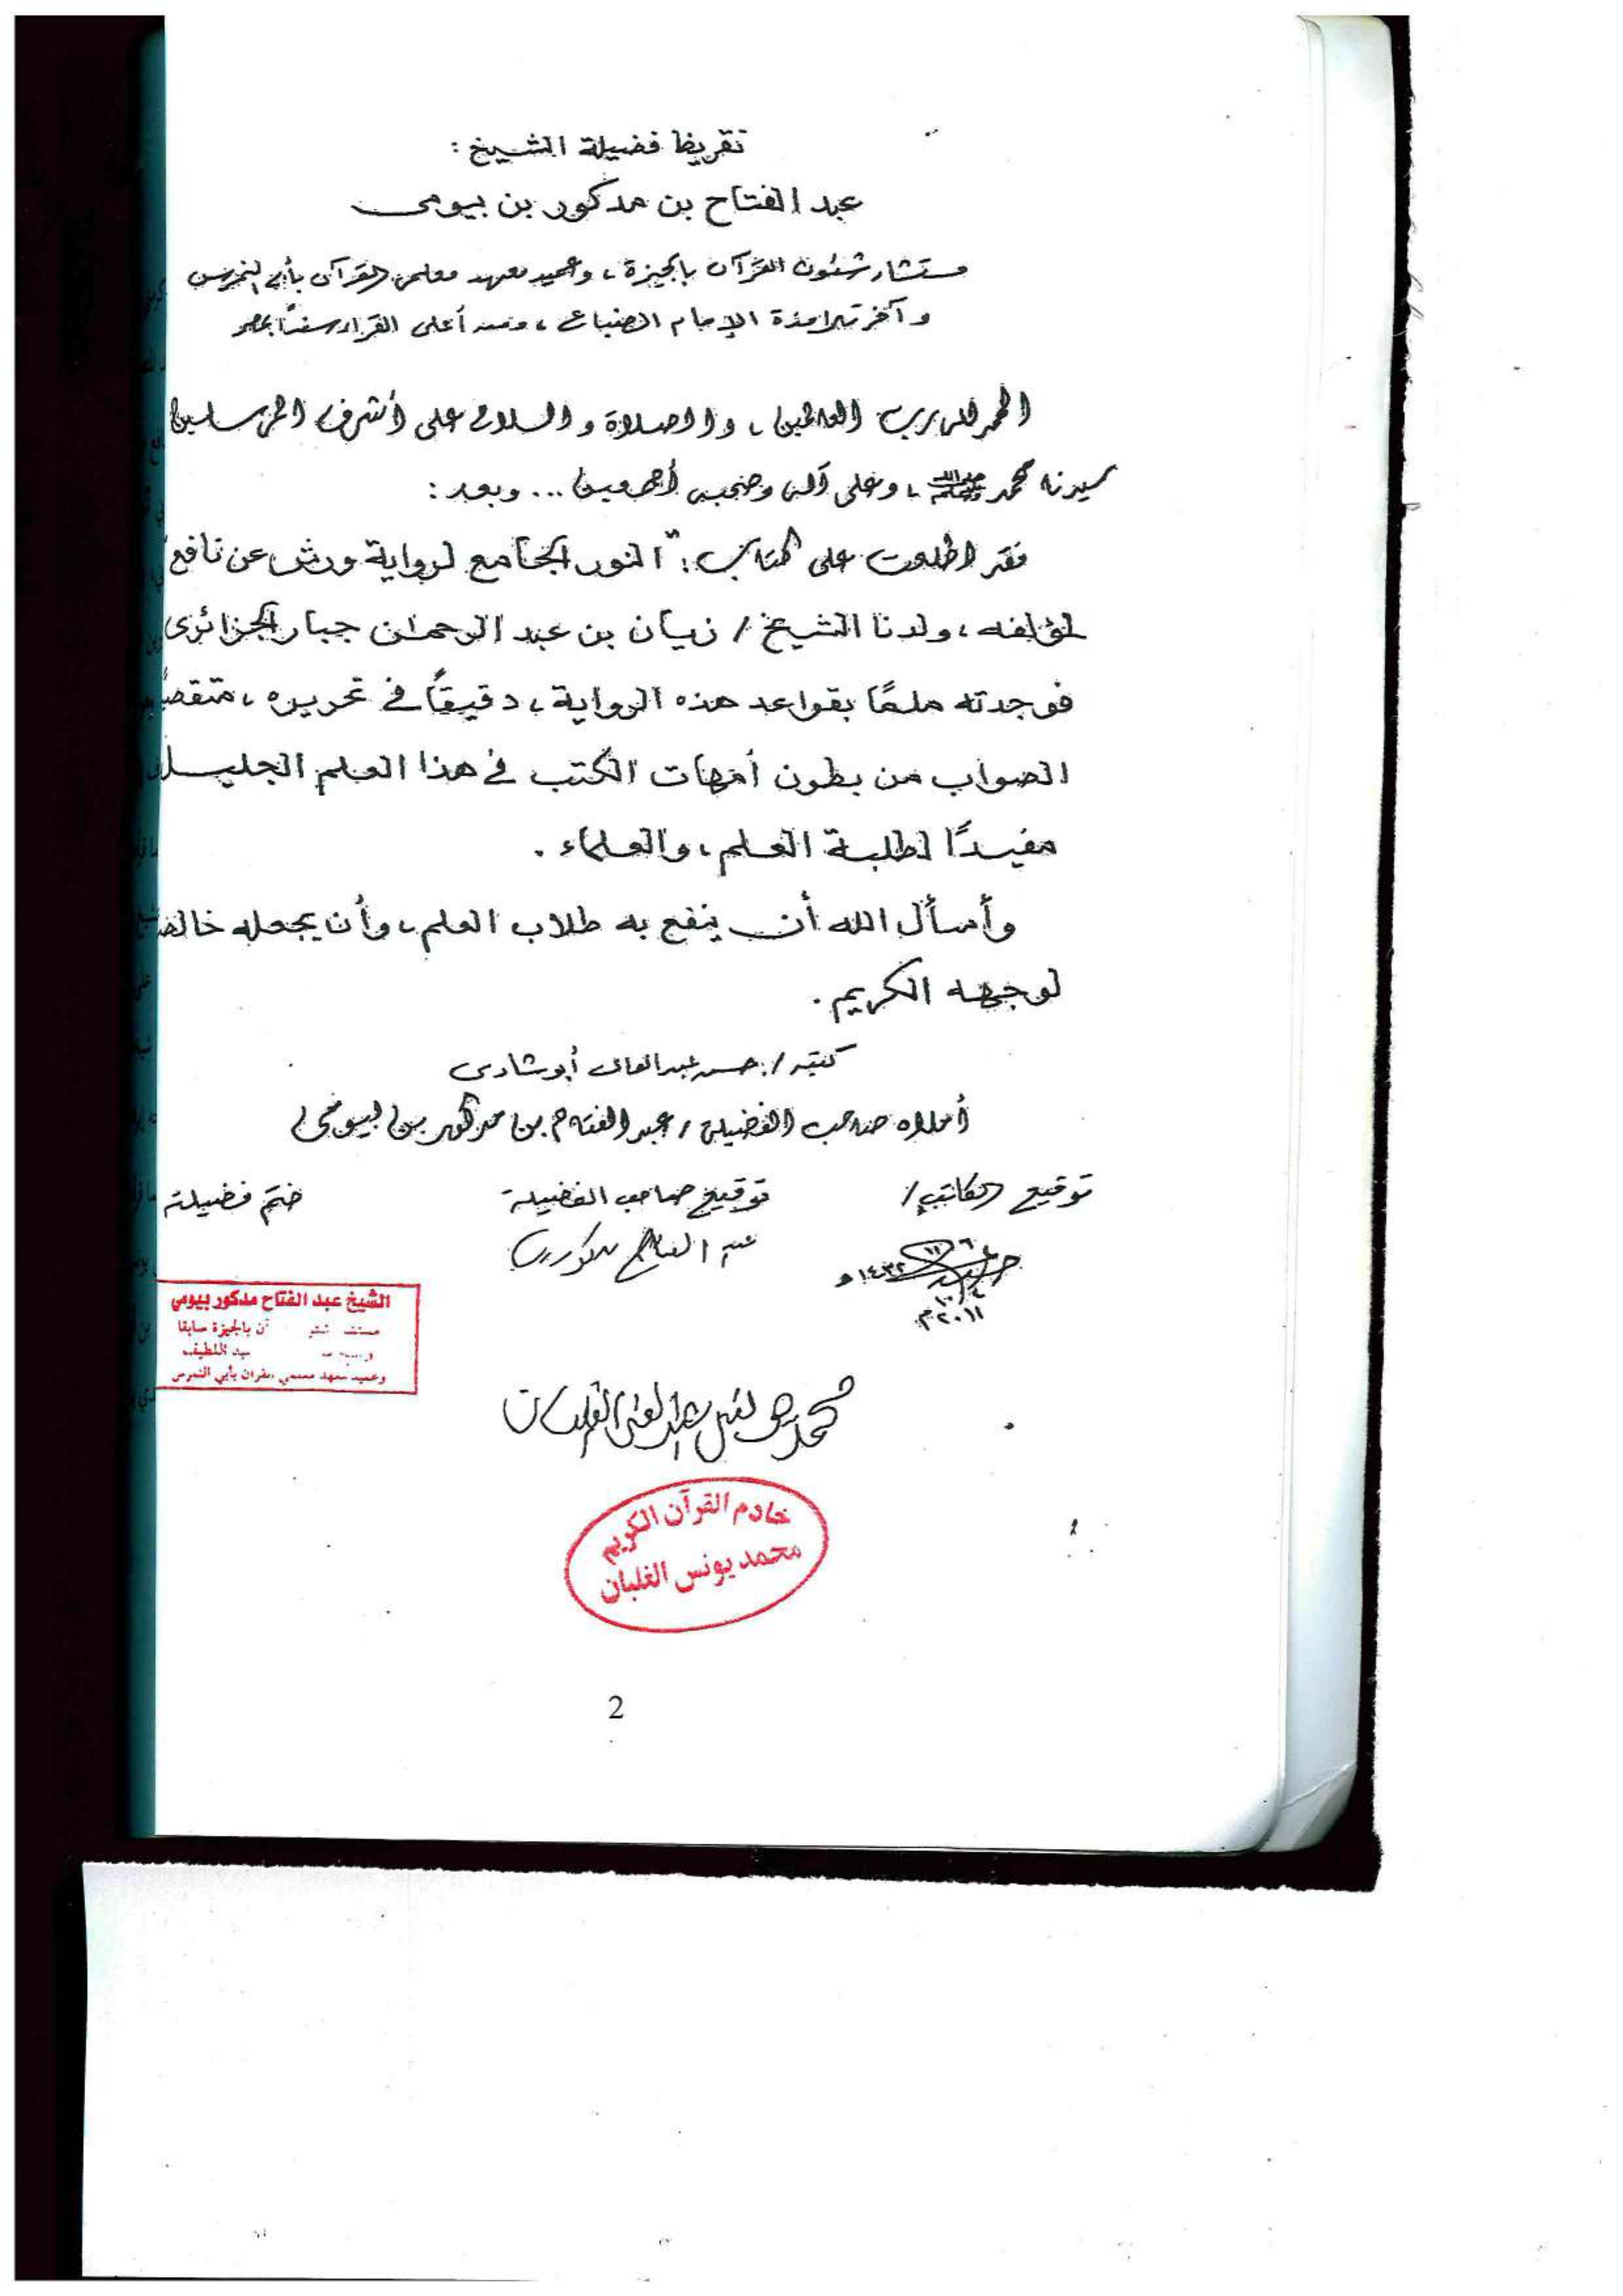 تقريظ فضيلة الشيخ :
عبد الفتاح بن مدكور بن بيومى
مستشار شئون القرآن بالجيزة ، وعميد معهد معلمى القرآن بأبى النمرس
وآخر تلامذة الإمام الضباع ، ومن أعلى القراء سندًا بمصر
الحمد لله رب العالمين ، والصلاة والسلام على أشرف المرسلين
سيدنا محمد ﷺ ، وعلى آله وصحبه أجمعين ... وبعد :
فقد اطلعت على كتاب : " النور الجامع لرواية ورش عن نافع "
لمؤلفه ، ولدنا الشيخ / زيان بن عبد الرحمن جبار الجزائرى
فوجدته ملمًا بقواعد هذه الرواية ، دقيقًا فى تحريره ، متقصيًا
الصواب من بطون أمهات الكتب فى هذا العلم الجليل
مفيدًا لطلبة العلم ، والعلماء .
وأسأل الله أن ينفع به طلاب العلم ، وأن يجعله خالصًا
لوجهه الكريم .
كتبه / حسن عبد العال أبو شادى
أملاه صاحب الفضيلة / عبد الفتاح بن مدكور بن بيومى
توقيع الكاتب /
توقيع صاحب الفضيلة
ختم فضيلة
عبد الفتاح مدكور
١٤٣٢ هـ
٢٠١١ م
الشيخ عبد الفتاح مدكور بيومي
بالجيزة سابقا
وعميد معهد معلمي القرآن بأبي النمرس
محمد يونس عبد الغنى الغلبان
خادم القرآن الكريم
محمد يونس الغلبان
2